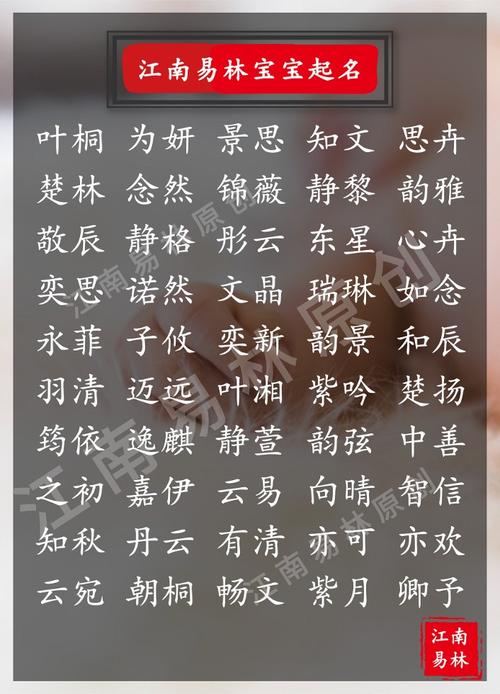 江南易林宝宝起名
叶桐 为妍 景思 知文 思卉
楚林 念然 锦薇 静黎 韵雅
敬辰 静格 彤云 东星 心卉
奕思 诺然 文晶 瑞琳 如念
永菲 子攸 奕新 韵景 和辰
羽清 迈远 叶湘 紫吟 楚扬
筠依 逸麒 静萱 韵弦 中善
之初 嘉伊 云易 向晴 智信
知秋 丹云 有清 亦可 亦欢
云宛 朝桐 畅文 紫月 卿予
江南易林原创
江南易林原创
江南易林原创
江南
易林